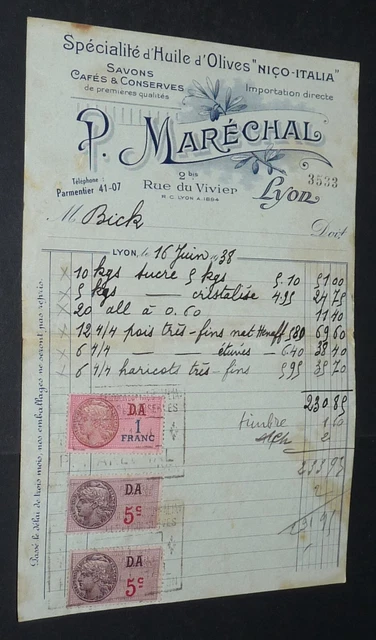 Spécialité d'Huile d'Olives "NIÇO-ITALIA"
SAVONS
CAFÉS & CONSERVES
de premières qualités
Importation directe
P. MARÉCHAL
2 bis
Rue du Vivier
R.C. LYON A.1894
Lyon
3533
Téléphone :
Parmentier 41-07
M. Bick
Doit
LYON, le 16 Juin 38
10 kgs sucre 5 kgs 5.10 51 00
5 kgs — cristalisé 4.95 24 75
20 all à 0.60 11 40
12 4/4 pois très-fins nat Henaff 580 69 60
6 4/4 — étuvés — 6.40 38 40
6 4/4 haricots très-fins 595 35 70
230 85
timbre 1 10
2
233 95
2
231 95
Passé le délai de trois mois, nos emballages ne seront pas repris.
DA
1
FRANC
DA
5c
DA
5c